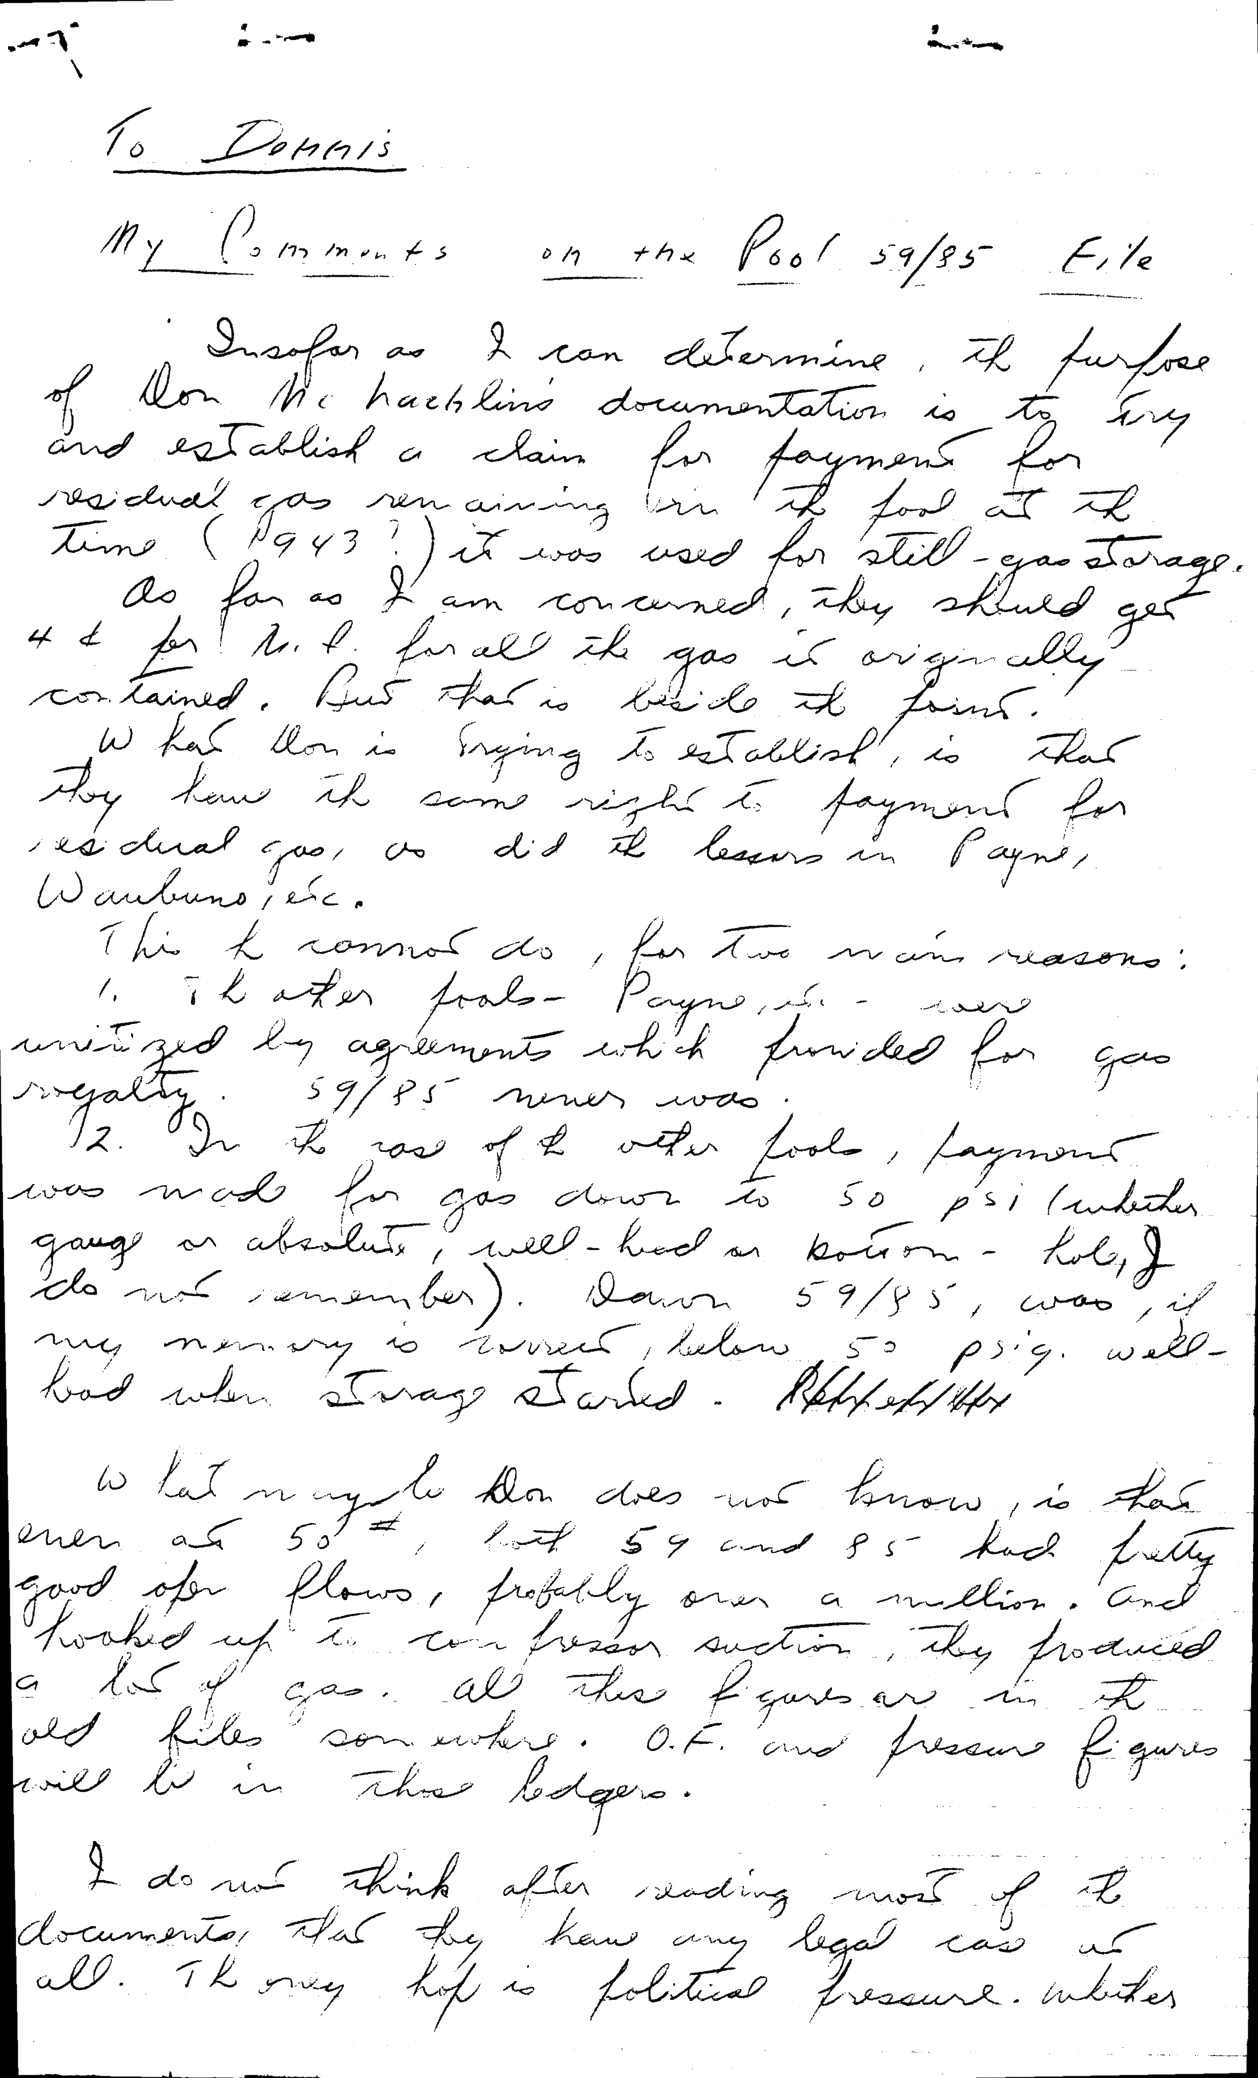 To Dennis
My Comments on the Pool 59/85 File
Insofar as I can determine, the purpose
of Don Mc Lachlin's documentation is to try
and establish a claim for payment for
residual gas remaining in the pool at the
time (1943?) it was used for still-gas storage.
As far as I am concerned, they should get
4 ¢ per M.c.f. for all the gas it originally
contained. But that is beside the point.
What Don is trying to establish, is that
they have the same right to payment for
residual gas, as did the lessors in Payne,
Waubuno, etc.
This he cannot do, for two main reasons:
1. The other pools - Payne, etc. - were
unitized by agreements which provided for gas
royalty. 59/85 never was.
2. In the case of the other pools, payment
was made for gas down to 50 psi (whether
gauge or absolute, well-head or bottom-hole, I
do not remember). Dawn 59/85, was, if
my memory is correct, below 50 psig. well-
head when storage started.
What maybe Don does not know, is that
even at 50 #, both 59 and 85 had pretty
good open flows, probably over a million. And
hooked up to compressor suction, they produced
a lot of gas. All these figures are in the
old files somewhere. O.F. and pressure figures
will be in those ledgers.
I do not think after reading most of the
documents, that they have any legal case at
all. The only hope is political pressure. Whether